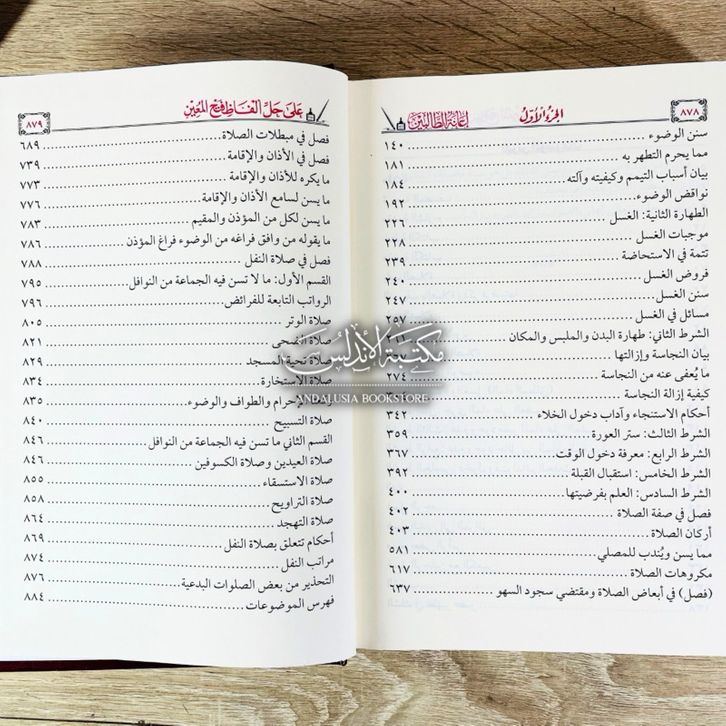 ٨٧٨
الجزء الأول
إعانة الطالبين
سنن الوضوء ١٤٠
مما يحرم التطهر به ١٨١
بيان أسباب التيمم وكيفيته وآلته ١٨٤
نواقض الوضوء ١٩٢
الطهارة الثانية: الغسل ٢٢٦
موجبات الغسل ٢٢٨
تتمة في الاستحاضة ٢٣٩
فروض الغسل ٢٤٠
سنن الغسل ٢٤٧
مسائل في الغسل ٢٥٧
الشرط الثاني: طهارة البدن والملبس والمكان
بيان النجاسة وإزالتها
ما يُعفى عنه من النجاسة ٢٧٤
كيفية إزالة النجاسة
أحكام الاستنجاء وآداب دخول الخلاء ٣٤٢
الشرط الثالث: ستر العورة ٣٥٩
الشرط الرابع: معرفة دخول الوقت ٣٦٧
الشرط الخامس: استقبال القبلة ٣٩٢
الشرط السادس: العلم بفرضيتها ٤٠٠
فصل في صفة الصلاة ٤٠٢
أركان الصلاة ٤٠٣
مما يسن ويُندب للمصلي ٥٨١
مكروهات الصلاة ٦١٧
(فصل) في أبعاض الصلاة ومقتضي سجود السهو ٦٣٧
على حل ألفاظ فتح المعين
٨٧٩
فصل في مبطلات الصلاة ٦٨٩
فصل في الأذان والإقامة ٧٣٩
ما يكره للأذان والإقامة ٧٧٣
ما يسن لسامع الأذان والإقامة ٧٧٦
ما يسن لكل من المؤذن والمقيم ٧٨٣
ما يقوله من وافق فراغه من الوضوء فراغ المؤذن ٧٨٦
فصل في صلاة النفل ٧٨٨
القسم الأول: ما لا تسن فيه الجماعة من النوافل ٧٩٥
الرواتب التابعة للفرائض ٧٩٦
صلاة الوتر ٨٠٥
صلاة الضحى ٨٢١
صلاة تحية المسجد ٨٢٩
صلاة الاستخارة ٨٣٤
سنة الإحرام والطواف والوضوء ٨٣٥
صلاة التسبيح ٨٤٠
القسم الثاني ما تسن فيه الجماعة من النوافل ٨٤٦
صلاة العيدين وصلاة الكسوفين ٨٤٦
صلاة الاستسقاء ٨٥٥
صلاة التراويح ٨٥٨
صلاة التهجد ٨٦٤
أحكام تتعلق بصلاة النفل ٨٦٩
مراتب النفل ٨٧٤
التحذير من بعض الصلوات البدعية ٨٧٦
فهرس الموضوعات ٨٨٤
مكتبة الأندلس
ANDALUSIA BOOKSTORE